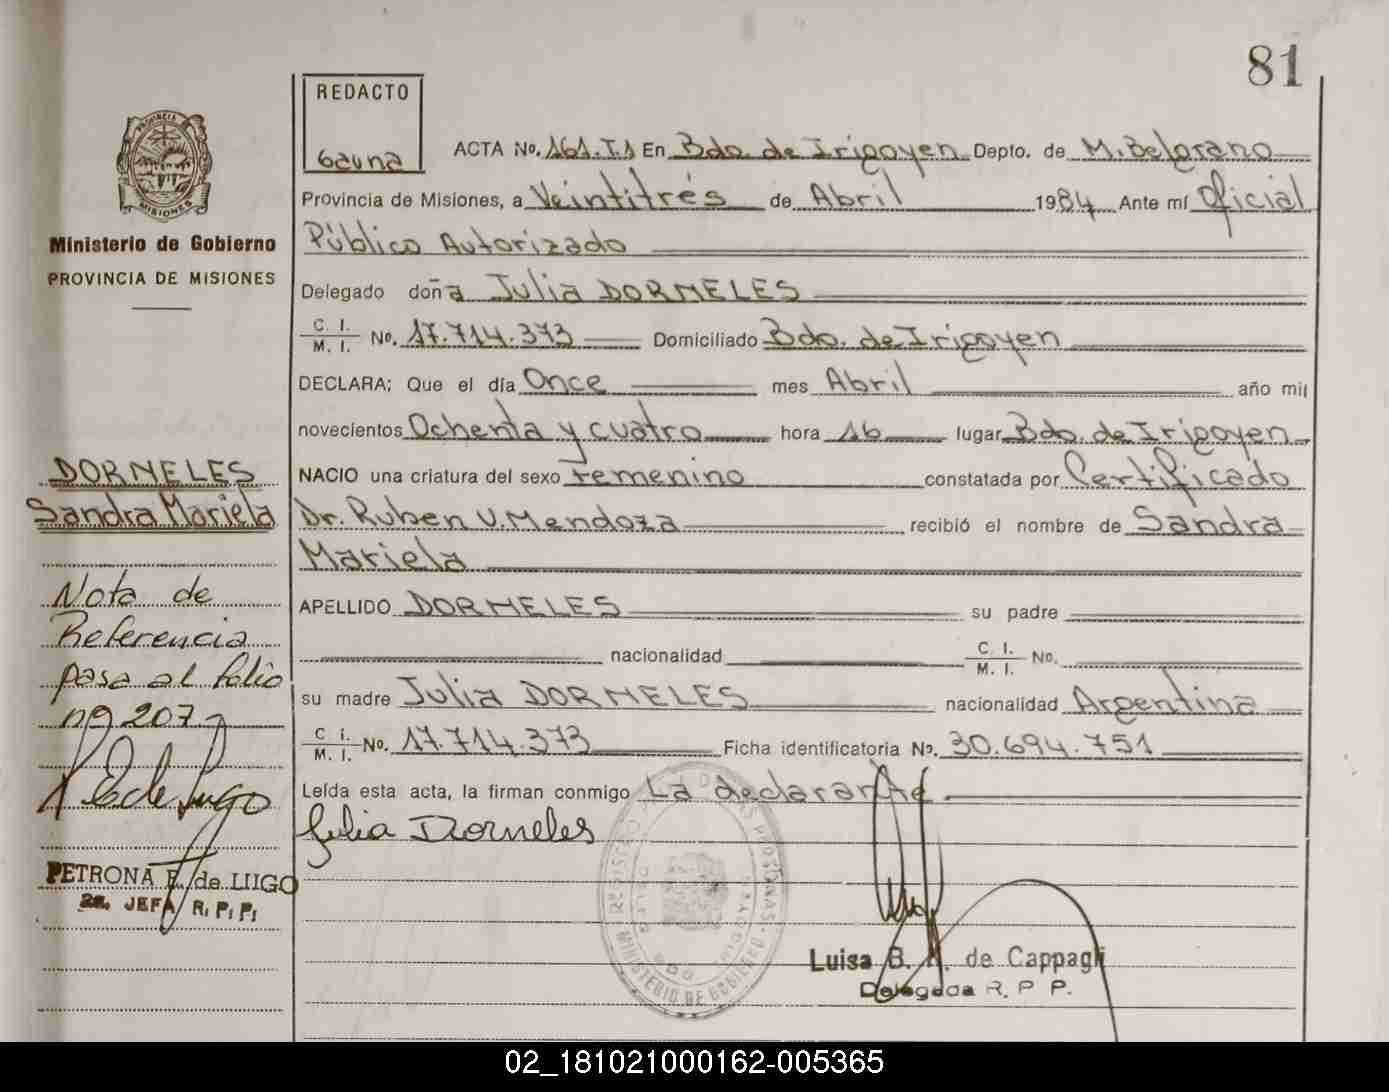 81
REDACTO
Gauna
PROVINCIA
MISIONES
Ministerio de Gobierno
PROVINCIA DE MISIONES
ACTA No. 161.T1 En Bdo. de Irigoyen Depto. de M. Belgrano
Provincia de Misiones, a Veintitrés de Abril 1984 Ante mí Oficial
Público Autorizado
Delegado doña Julia DORNELES
C. I.
M. I. No. 17.714.373 Domiciliado Bdo. de Irigoyen
DECLARA: Que el día Once mes Abril año mil
novecientos Ochenta y cuatro hora 16 lugar Bdo. de Irigoyen
NACIO una criatura del sexo Femenino constatada por Certificado
Dr. Ruben V. Mendoza recibió el nombre de Sandra
Mariela
APELLIDO DORNELES su padre
nacionalidad C. I.
M. I. No.
su madre Julia DORNELES nacionalidad Argentina
C. I.
M. I. No. 17.714.373 Ficha identificatoria No. 30.694.751
Leída esta acta, la firman conmigo La declarante
Julia Dorneles
DORNELES
Sandra Mariela
Nota de
Referencia
pasa al folio
nº 207
PETRONA E. de LUGO
2a. JEFA R. P. P.
MINISTERIO DE GOBIERNO
Luisa B. de Cappagli
Delegada R. P. P.
02_181021000162-005365